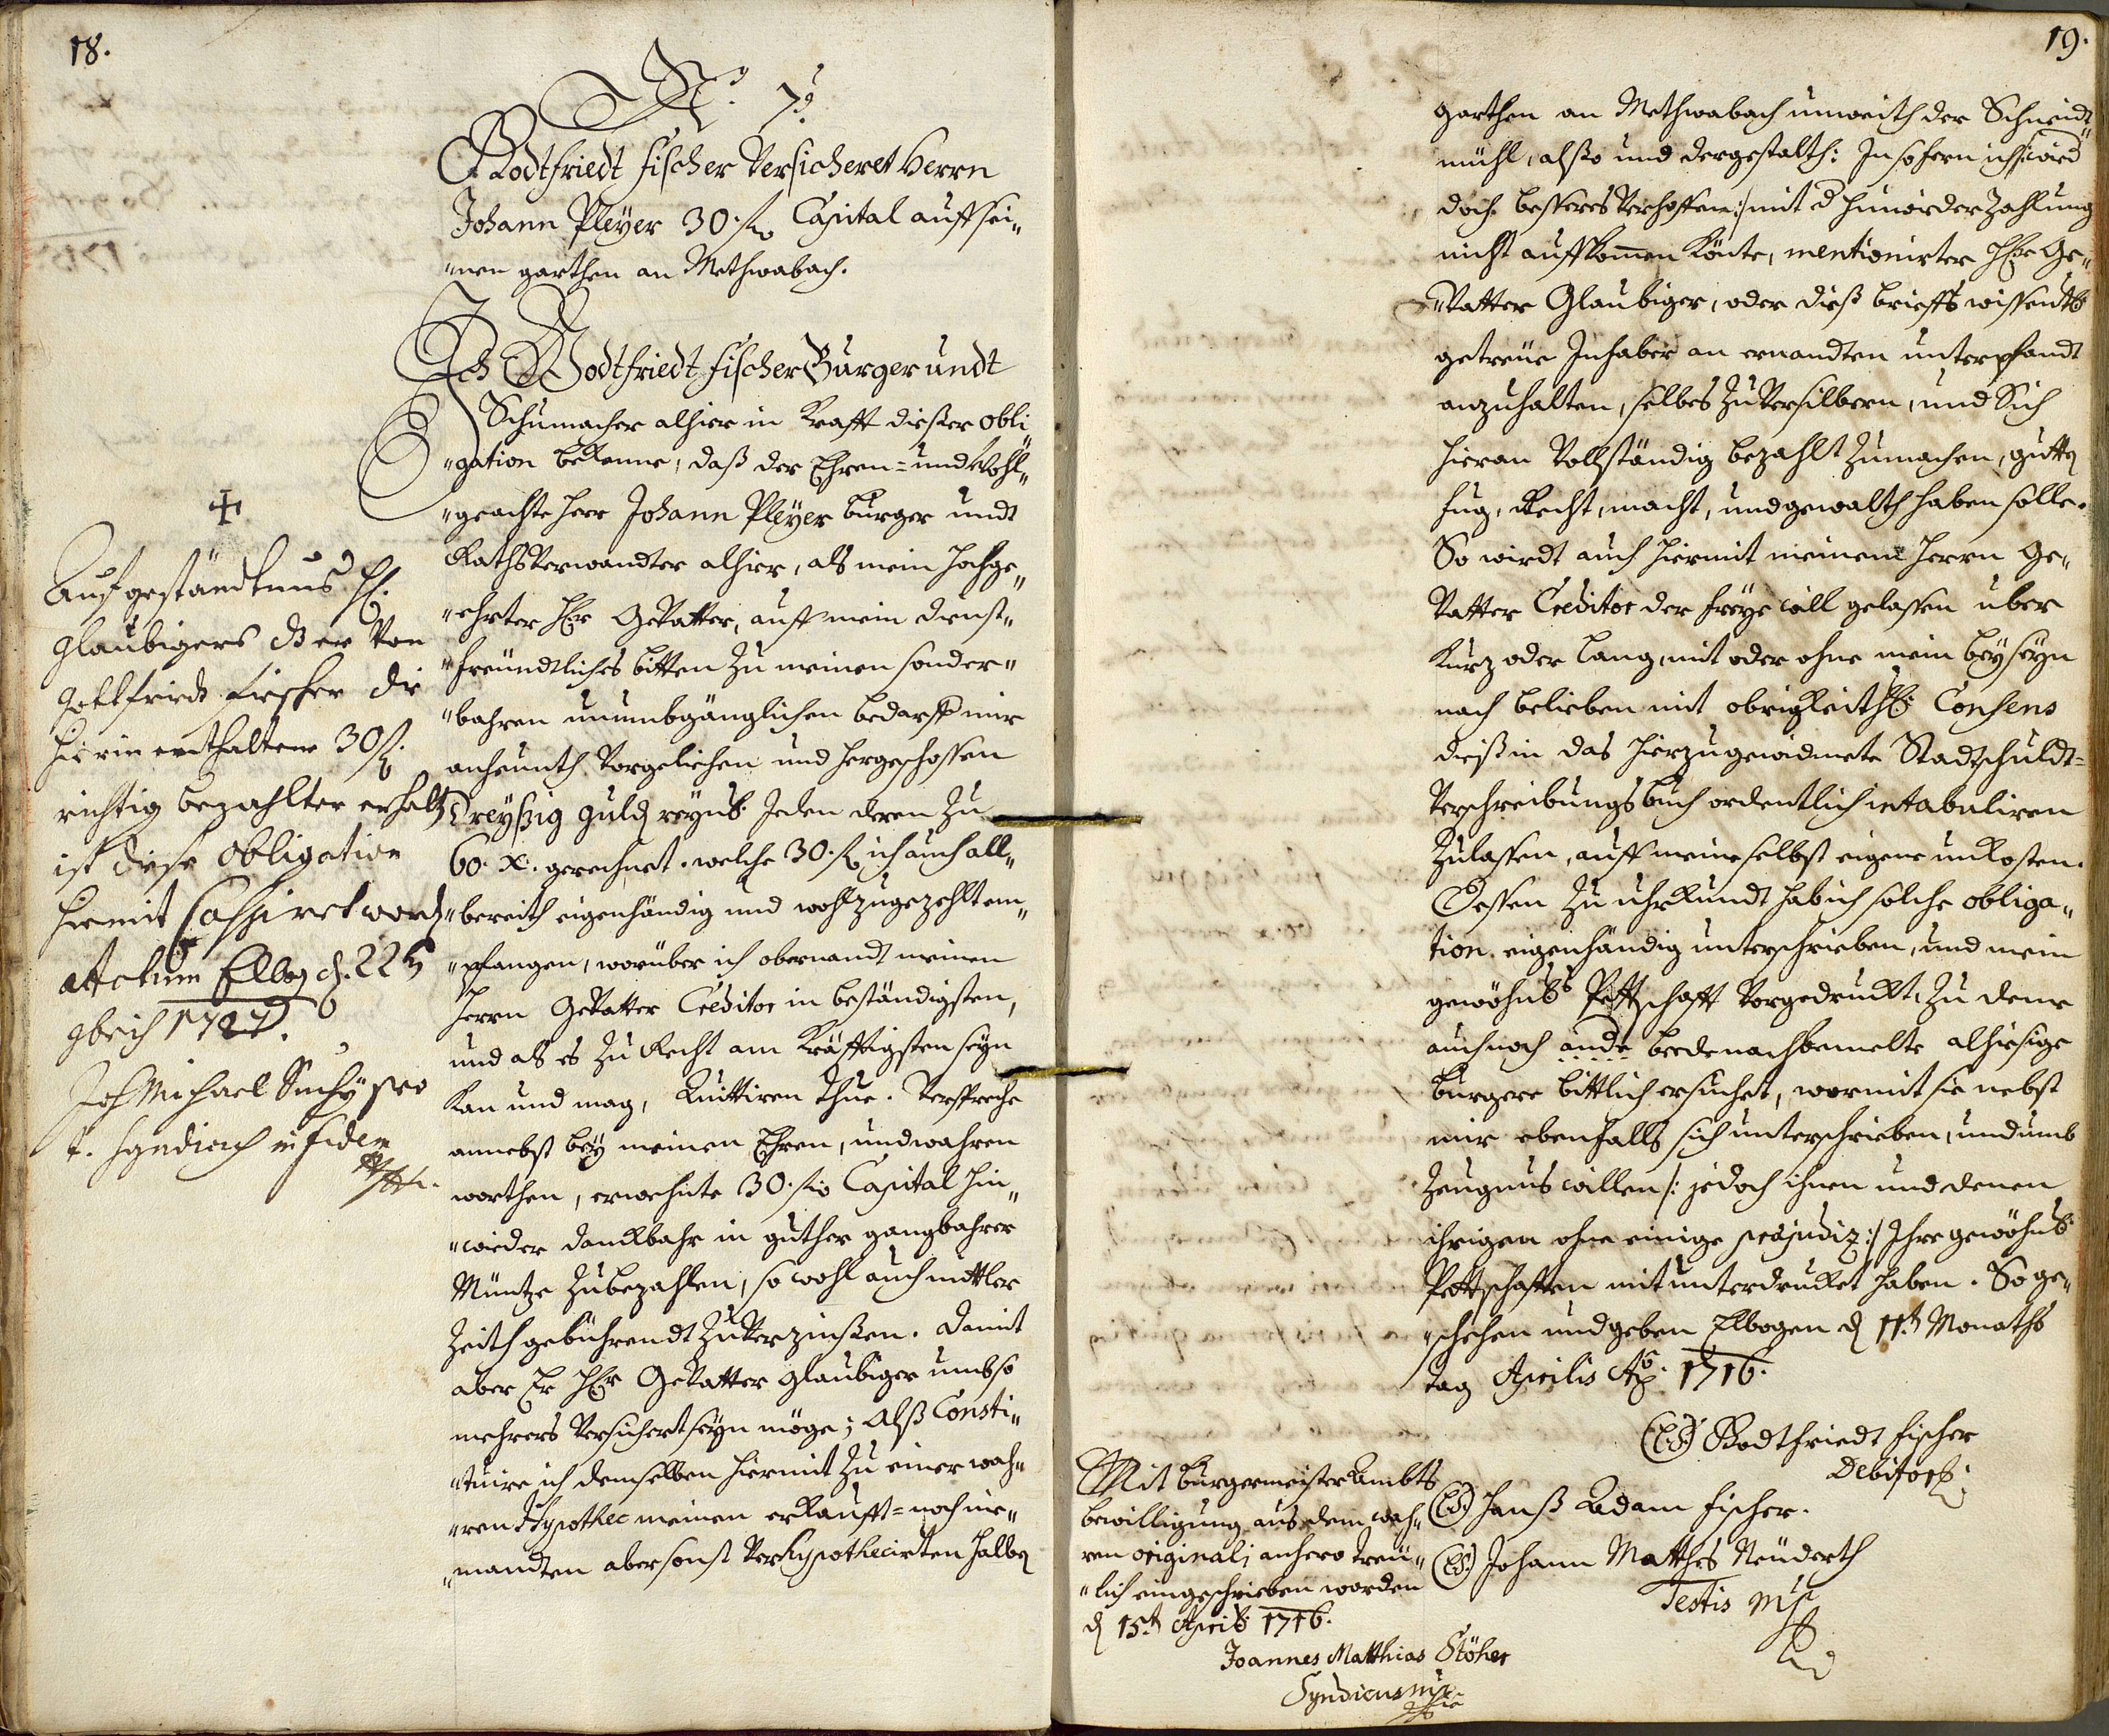 18.
No. 7.
Godtfriedt Fischer Versicheret Herrn
Johann Pleyer 30. fl. Capital auff sei„
„nen garthen an Methwabach.
Ich Godtfriedt Fischer Burger undt
Schumacher alhier in Krafft dießer obli„
„gation bekenne, daß der Ehren= und Wohl„
„geachte Herr Johann Pleyer burger undt
Rathsverwandter alhier, als mein hochge„
„ehrter Hr. Gevatter, auff mein dienst„
„freundtliches bitten zu meinen sonder„
„bahren unumbgänglichen bedarff mir
anheunth Vorgeliehen und hergeschossen
Dreyßig guld. reynl. Jeden deren zu
60. x. gerechnet. welche 30. fl. ich auch all„
„bereith eigenhändig und wohlzugezehlt em„
„pfangen, worüber ich obernandt meinen
Herrn Gevatter Creditor in beständigsten,
und als es zu Recht am Kräfftigsten seyn
kan und mag, Quittiren thue. Verspreche
annebst bey meinen Ehren, und wahren
worthen, erwehnte 30. fl. Capital hin„
„wieder danckbahr in guther gangbahrer
Müntze zubezahlen, so wohl auch mittler
Zeith gebührendt zu Verzinßen. Damit
aber Er Hr. Gevatter glaubiger umb so
mehrers Versichert seyn möge; Alß Consti„
„tuire ich demselben hiermit zu einer wah„
„ren Hypothec meinen erkaufft= noch nie„
„mandten aber sonst Verhypothecirten halben
Auf geständtnus H.
glaubigers dß er Von
Gottfriedt Fischer die
hierin enthaltene 30 fl.
richtig bezahlter erhalt.
ist diese obligation
hiermit Cassiret word.
Actum Elbog. d. 22t
1727.
Joh Michael Suchy pro
t. Syndicus in fidem
19.
garthen an Methwabach unweith der Schneidt„
mühl, alßo und dergestalth: In sofern ich /:wird
doch besseres Verhoffen:/ mit d. hinwider Zahlung
nicht auffkomen könte, mentionirter Hr. Ge„
„Vatter Glaubiger, oder dieß brieffs wissentl.
getreue Inhaber an ernandten unterpfandt
anzuhalten, selbes zu Versilbern, und Sich
hieran Vollständig bezahlt zumachen, gutten
fug, Recht, macht, und gewalth haben solle.
So wirdt auch hiermit meinem Herrn Ge„
Vatter Creditor der freye will gelassen über
kurz oder lang, mit oder ohne mein beyseyn
nach belieben mit obrigkeithl. Consens
dieß in das hierzu gewidmete Stadtschuldt=
Verschreibungsbuch ordentlich intabuliren
zulassen, auff meine selbst eigene unkosten.
Dessen zu uhrkundt hab ich solche obliga„
tion eigenhändig unterschrieben, und mein
gewöhnl. Pettschafft Vorgedruckt, zu deme
auch noch ande beede nachbemelte alhiesige
burgere bittlich ersuchet, wormit sie nebst
mir ebenfalls sich unterschrieben, und umb
Zeugnus willen /: jedoch ihnen und denen
ihrigen ohne einige prejudiz:/ Ihre gewöhnl.
Pettschafften mit unterdrucket haben. So ge„
„schehen und geben Elbogen d. 11t. Monaths
tag Aprilis Ao. 1716.
(L.S.) Godtfriedt Fischer
Debitor.
(L.S.) Hanß Adam Fischer.
(L.S.) Johann Matthes Neuderth
Testis mp
Mit burgermeister Ambts
bewilligung aus dem wah„
ren originali anhero treu„
„lich eingeschrieben worden
d 15t. April. 1716.
Joannes Matthias Stöher
Syndicus mp